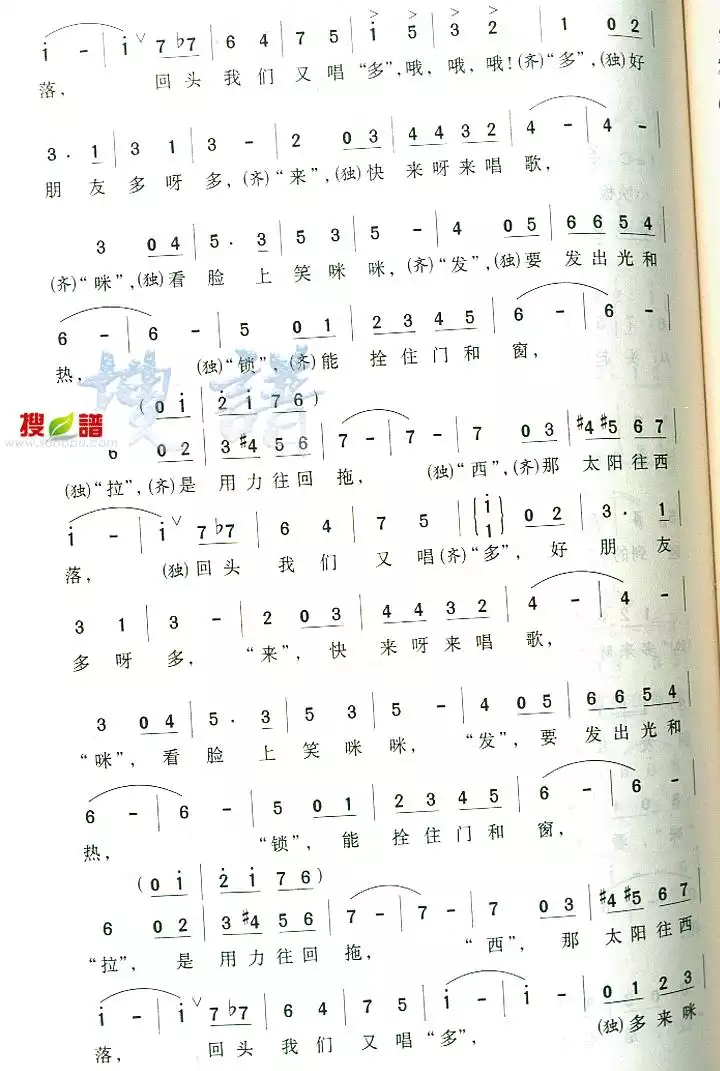 i - | i ∨ 7 ♭7 | 6 4 | 7 5 | i 5 | 3 2 | 1 0 2 |
落, 回头 我们 又唱 “多”, 哦, 哦, 哦! (齐)“多”, (独)好
3 . 1 | 3 1 | 3 - | 2 0 3 | 4 4 3 2 | 4 - | 4 - |
朋 友 多 呀 多, (齐)“来”, (独)快 来呀来唱 歌,
3 0 4 | 5 . 3 | 5 3 | 5 - | 4 0 5 | 6 6 5 4 |
(齐)“咪”, (独)看 脸 上 笑 咪 咪, (齐)“发”, (独)要 发出光和
6 - | 6 - | 5 0 1 | 2 3 4 5 | 6 - | 6 - |
热, (独)“锁”, (齐)能 拴住门和 窗,
(0 i | 2 i 7 6)
搜谱
6 0 2 | 3 #4 5 6 | 7 - | 7 - | 7 0 3 | #4 #5 6 7 |
(独)“拉”, (齐)是 用力往回 拖, (独)“西”, (齐)那 太阳往西
i - | i ∨ 7 ♭7 | 6 4 | 7 5 | {i 1} 0 2 | 3 . 1 |
落, (独)回头 我们 又唱 (齐)“多”, 好 朋 友
3 1 | 3 - | 2 0 3 | 4 4 3 2 | 4 - | 4 - |
多 呀 多, “来”, 快 来呀来唱 歌,
3 0 4 | 5 . 3 | 5 3 | 5 - | 4 0 5 | 6 6 5 4 |
“咪”, 看 脸 上 笑 咪 咪, “发”, 要 发出光和
6 - | 6 - | 5 0 1 | 2 3 4 5 | 6 - | 6 - |
热, “锁”, 能 拴住门和 窗,
(0 i | 2 i 7 6)
6 0 2 | 3 #4 5 6 | 7 - | 7 - | 7 0 3 | #4 #5 6 7 |
“拉”, 是 用力往回 拖, “西”, 那 太阳往西
i - | i ∨ 7 ♭7 | 6 4 | 7 5 | i - | i - | 0 1 2 3 |
落, 回头 我们 又唱 “多”, (独)多来咪